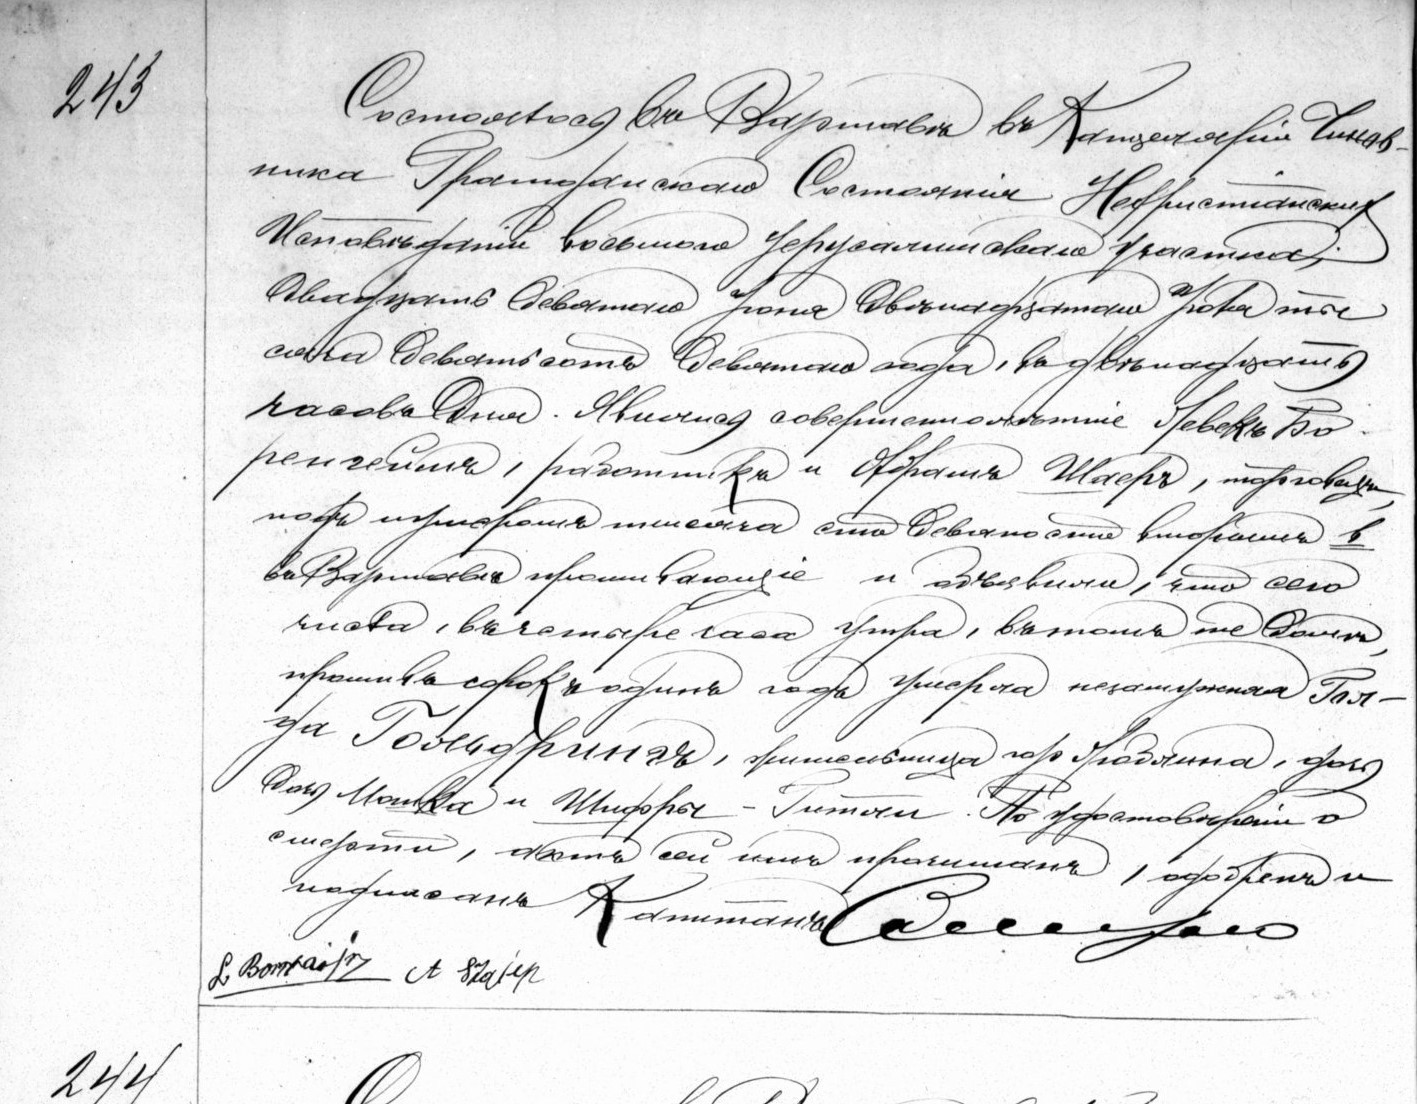 243
Состоялось въ Варшавѣ въ Канцеляріи Чинов-
ника Гражданскаго Состоянія Нехристіанскихъ
Исповѣданій восьмого Іерусалимскаго участка,
двадцать девятаго Іюня двѣнадцатаго Іюля ты
сяча девятьсотъ девятаго года, въ двѣнадцать
часовъ дня. Явились совершеннолѣтніе Левекъ Бо
ренгеймъ, работникъ и Абрамъ Шаеръ, торговецъ,
подъ нумеромъ тысяча сто девяносто вторымъ в
въ Варшавѣ проживающіе и объявили, что сего
числа, въ четыре часа утра, въ томъ же домѣ,
проживъ сорокъ одинъ годъ умерла незамужняя Гол-
да Гольдрингъ, жительница гор Люблина, дочь
Мошка и Шифры - Гитли. По удостовѣреніи о
смерти, актъ сей имъ прочитанъ, одобренъ и
подписанъ Капитанъ
A Szajer
244